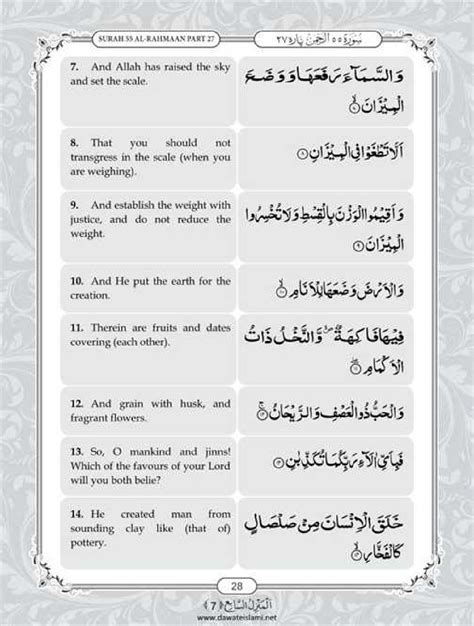 SURAH 55 AL-RAHMAAN PART 27
سُوْرَة ٥٥ الرَّحْمٰن پارہ ٢٧
7. And Allah has raised the sky
and set the scale.
وَالسَّمَآءَ رَفَعَهَا وَوَضَعَ
الْمِيْزَانَ ۙ﴿۷﴾
8. That you should not
transgress in the scale (when you
are weighing).
اَلَّا تَطْغَوْا فِي الْمِيْزَانِ ﴿۸﴾
9. And establish the weight with
justice, and do not reduce the
weight.
وَاَقِيْمُوا الْوَزْنَ بِالْقِسْطِ وَلَا تُخْسِرُوا
الْمِيْزَانَ ﴿۹﴾
10. And He put the earth for the
creation.
وَالْاَرْضَ وَضَعَهَا لِلْاَنَامِ ۙ﴿۱۰﴾
11. Therein are fruits and dates
covering (each other).
فِيْهَا فَاكِهَةٌ ۪ۙ وَّالنَّخْلُ ذَاتُ
الْاَكْمَامِ ۖ﴿۱۱﴾
12. And grain with husk, and
fragrant flowers.
وَالْحَبُّ ذُو الْعَصْفِ وَالرَّيْحَانُ ۚ﴿۱۲﴾
13. So, O mankind and jinns!
Which of the favours of your Lord
will you both belie?
فَبِاَيِّ اٰلَآءِ رَبِّكُمَا تُكَذِّبٰنِ ﴿۱۳﴾
14. He created man from
sounding clay like (that of)
pottery.
خَلَقَ الْاِنْسَانَ مِنْ صَلْصَالٍ
كَالْفَخَّارِ ۙ﴿۱۴﴾
28
اَلْمَنْزِلُ السَّابِع ﴿7﴾
www.dawateislami.net